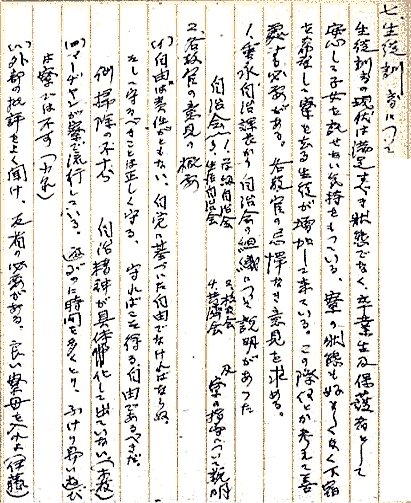 七、生徒訓育について
生徒訓育の現状は満足すべき状態でなく、卒業生及保護者として
安心して子女を託せない気持をもっている。寮の状態も好ましくなく下宿
を希望して寮を去る生徒が増加して来ている。この際何とか考えて善
処する必要がある。各教官の忌憚なき意見を求める。
1.垂水自治課長から自治会の組織について説明があった
自治会 1.学級自治会 2.生活自治会 3.校友会 4.共済会 及 寮の指導について説明
2.各教官の意見の概要
(イ)自由は責任がともない、自完に基づいた自由でなければならぬ
そして守るべきことは正しく守る、守ればこそ得る自由があるべきだ。
例 掃除の不十分 自治精神が具体化して出ていない
(ロ)マージャンが寮で流行している。遊びに時間を多くとり、ふけり易い遊び
は寮には不可
(ハ)外部の批評をよく聞け、反省の必要がある。良い寮母を入れよ(伊藤)